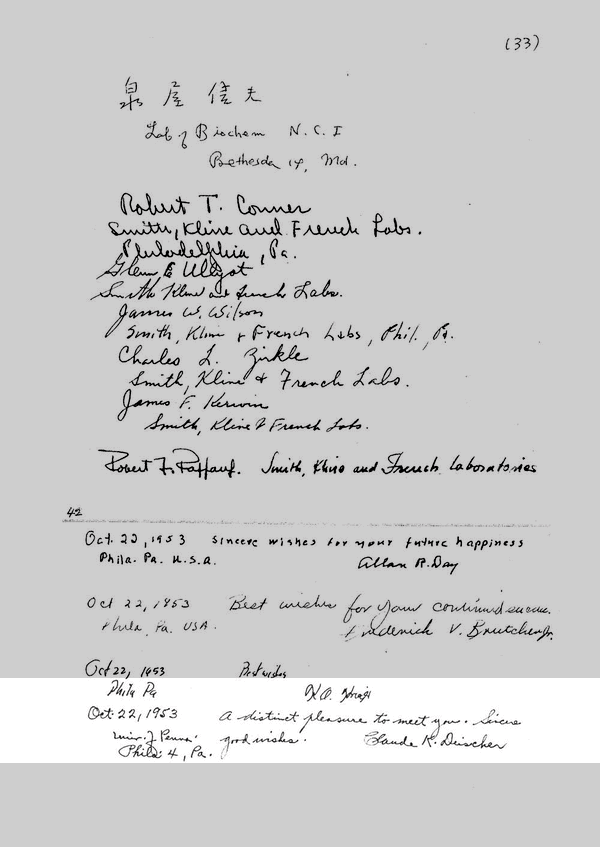 (33)
泉屋信夫
Lab of Biochem N. C. I
Bethesda 14, Md.
Robert T. Conner
Smith, Kline and French Labs.
Philadelphia, Pa.
Glenn E Ullyot
Smith Kline and French Labs.
James W. Wilson
Smith, Kline & French Labs, Phil., Pa.
Charles L. Zirkle
Smith, Kline & French Labs.
James F. Kerwin
Smith, Kline & French Labs.
Robert F. Raffauf. Smith, Kline and French Laboratories
42
Oct. 22, 1953 Sincere wishes for your future happiness
Phila. Pa. U.S.A. Allan R. Day
Oct 22, 1953 Best wishes for your continued success.
Phila, Pa. USA. Frederick V. Brutcher Jr.
Oct 22, 1953 Best wishes
Phila Pa
Oct. 22, 1953 A distinct pleasure to meet you. Sincere
Univ. of Penna. good wishes. Claude K. Deischer
Phila 4, Pa.